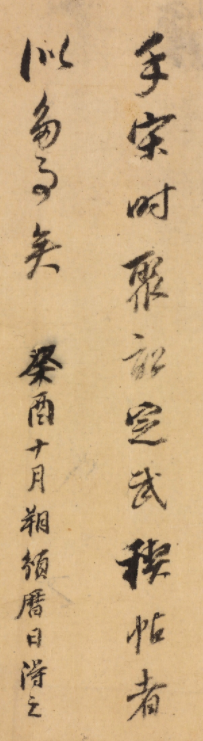 手宋时聚訟定武稧帖者
似多事矣 癸酉十月朔頒曆日得之